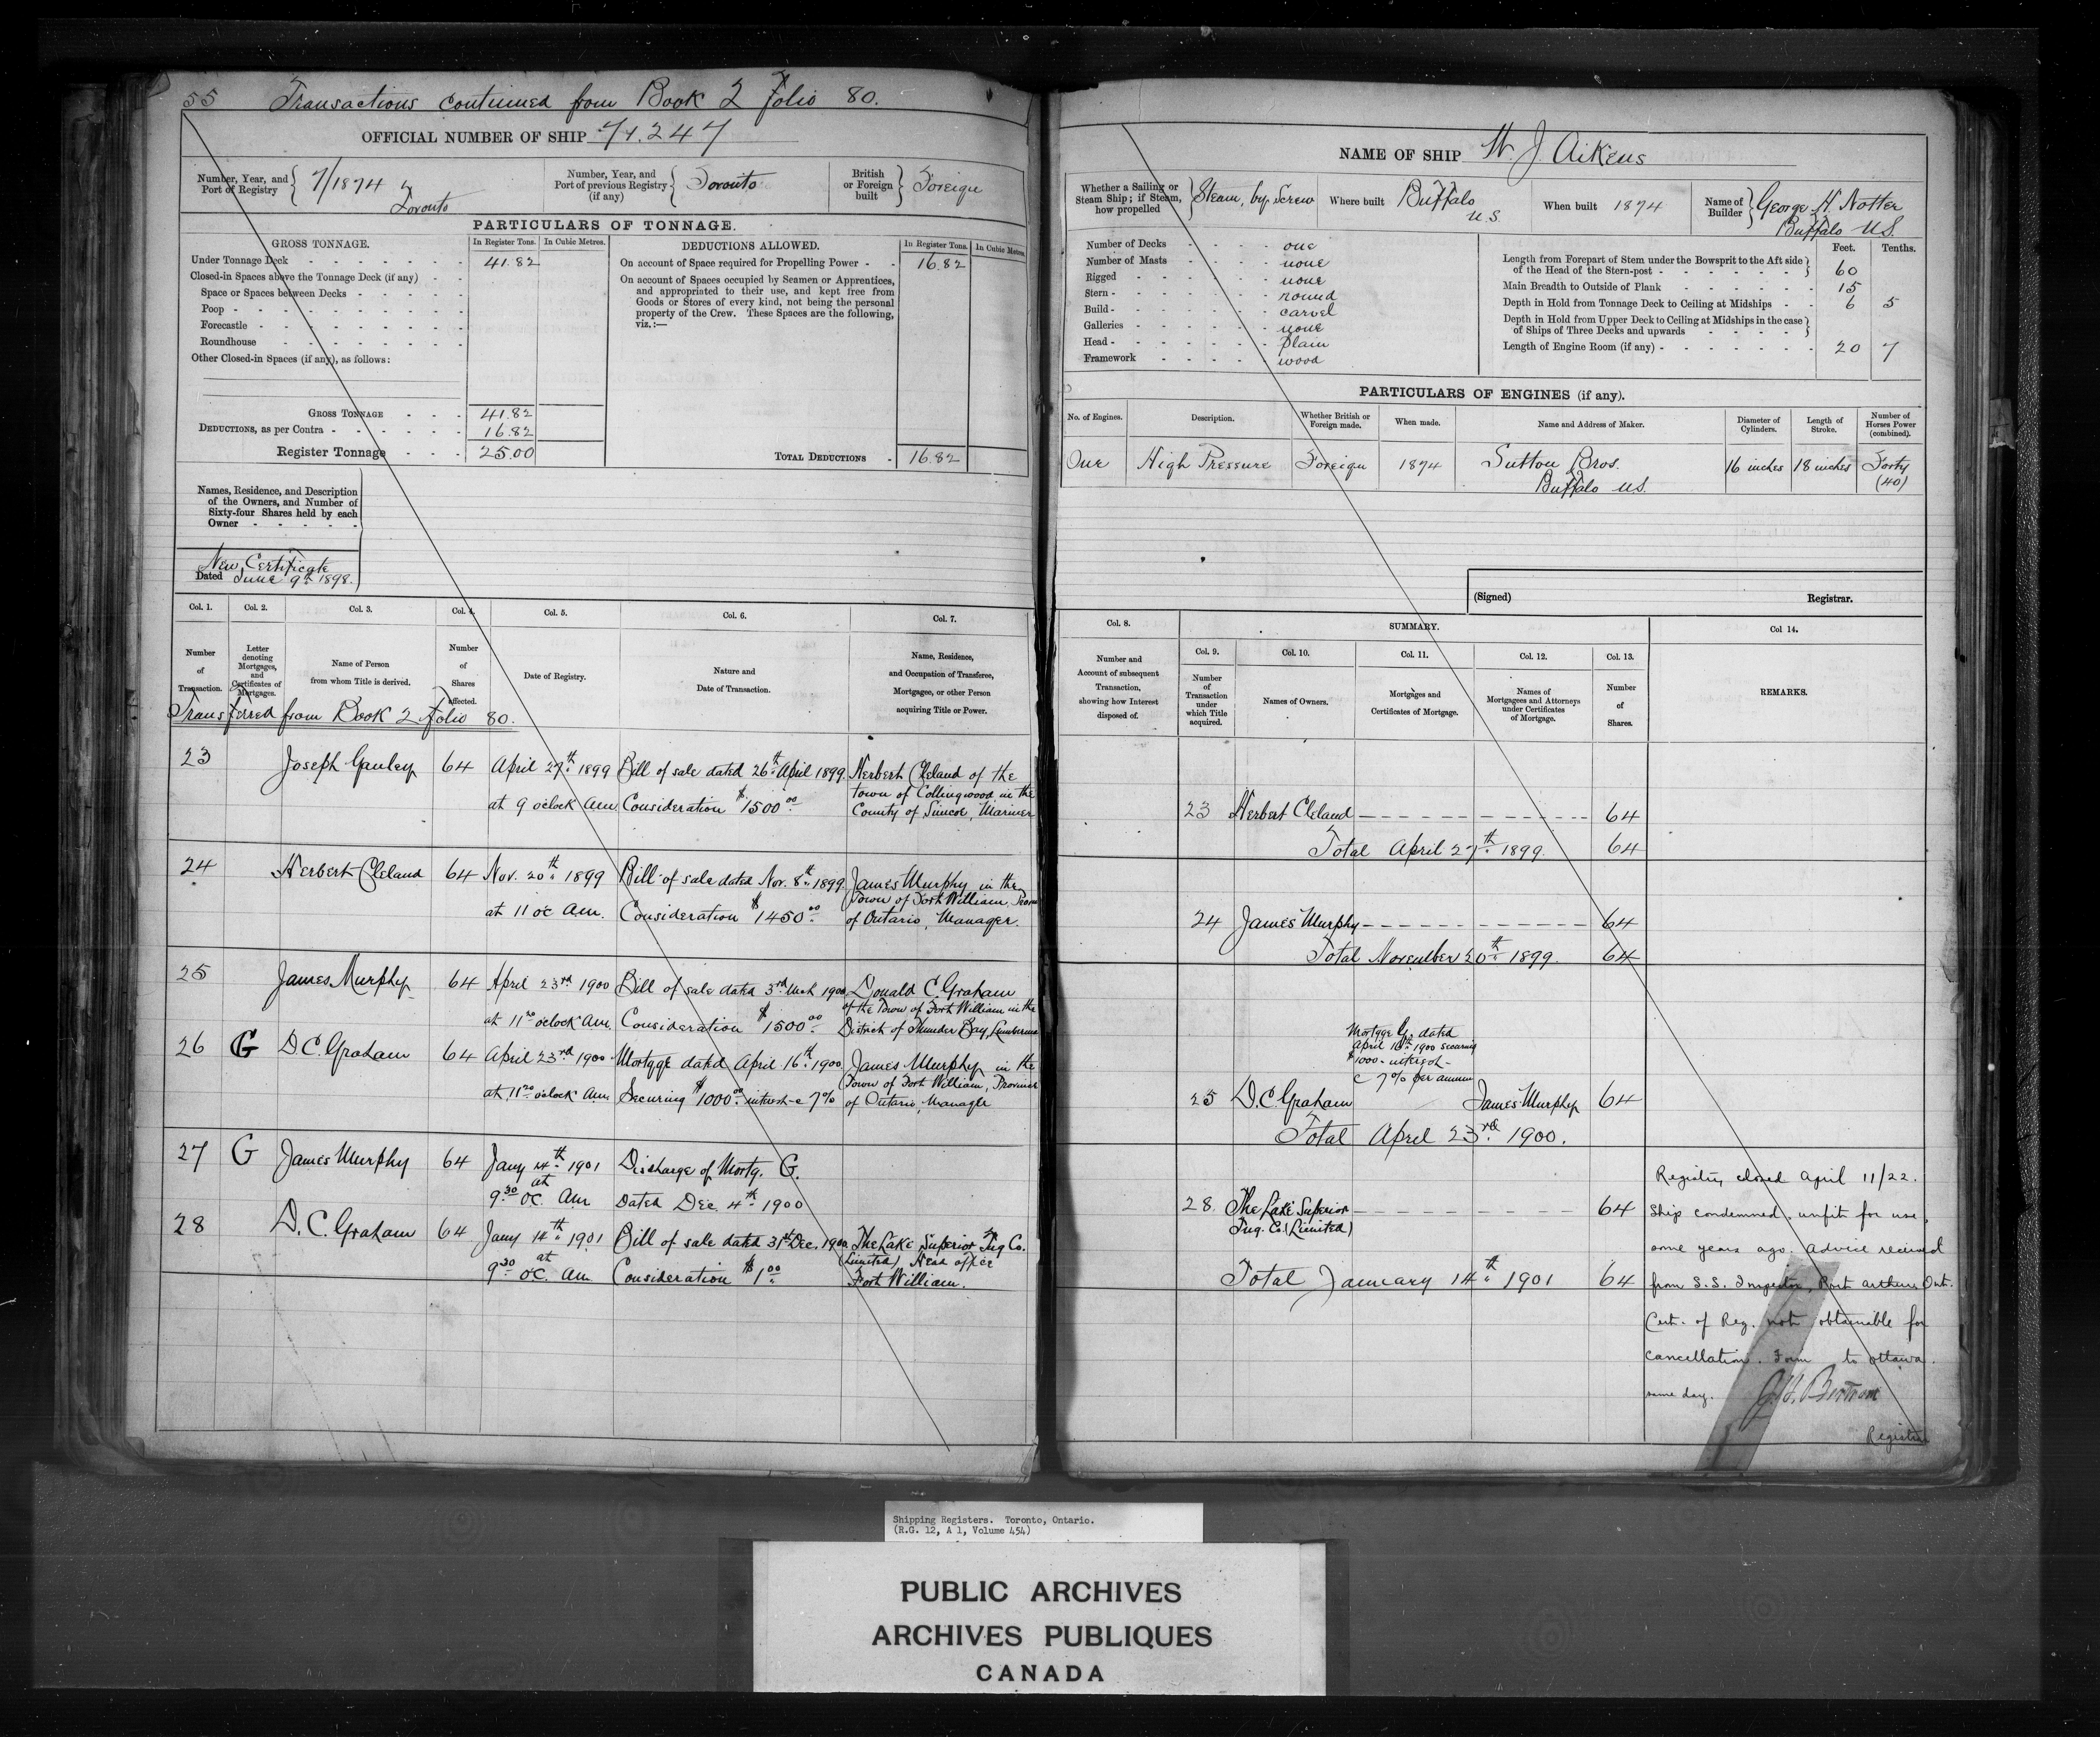 55 Transactions continued from Book 2 Folio 80.
OFFICIAL NUMBER OF SHIP 71.247
Number, Year, and Port of Registry 7/1874 Toronto
Number, Year, and Port of previous Registry (if any) Toronto
British or Foreign built Foreign
PARTICULARS OF TONNAGE.
GROSS TONNAGE. In Register Tons. In Cubic Metres.
DEDUCTIONS ALLOWED. In Register Tons. In Cubic Metres.
Under Tonnage Deck 41.82
Closed-in Spaces above the Tonnage Deck (if any)
Space or Spaces between Decks
Poop
Forecastle
Roundhouse
Other Closed-in Spaces (if any), as follows:
GROSS TONNAGE 41.82
DEDUCTIONS, as per Contra 16.82
Register Tonnage 25.00
On account of Space required for Propelling Power 16.82
On account of Spaces occupied by Seamen or Apprentices,
and appropriated to their use, and kept free from
Goods or Stores of every kind, not being the personal
property of the Crew. These Spaces are the following,
viz.:—
TOTAL DEDUCTIONS 16.82
Names, Residence, and Description
of the Owners, and Number of
Sixty-four Shares held by each
Owner
New Certificate
Dated June 9th 1898.
Col. 1. Col. 2. Col. 3. Col. 4. Col. 5. Col. 6. Col. 7.
Number of Transaction.
Letter denoting Mortgages, and Certificates of Mortgages.
Name of Person from whom Title is derived.
Number of Shares affected.
Date of Registry.
Nature and Date of Transaction.
Name, Residence, and Occupation of Transferee, Mortgagee, or other Person acquiring Title or Power.
Transferred from Book 2 Folio 80.
23 Joseph Ganley 64 April 27th 1899 Bill of sale dated 26th April 1899. Herbert Cleland of the
town of Collingwood in the
at 9 oclock am Consideration $1500.00 County of Simcoe, Mariner
24 Herbert Cleland 64 Nov. 20th 1899 Bill of sale dated Nov. 8th 1899. James Murphy in the
Town of Fort William, Prov
at 11 oc am. Consideration $1450.00 of Ontario, Manager.
25 James Murphy 64 April 23rd 1900 Bill of sale dated 3rd Mch 1900 Donald C. Graham
of the Town of Fort William in the
at 11 20 oclock Am. Consideration $1500.00 District of Thunder Bay, Lumberman
26 G D.C. Graham 64 April 23rd 1900 Mortgge dated April 16th 1900. James Murphy in the
Town of Fort William, Province
at 11 20 oclock Am. Securing $1000.00 interest @ 7% of Ontario, Manager
27 G James Murphy 64 Jany 14th 1901 Discharge of Mortg. G.
at
9.30 oc. Am Dated Dec. 4th 1900
28 D. C. Graham 64 Jany 14th 1901 Bill of sale dated 31st Dec. 1900. The Lake Superior Tug Co.
at (Limited) Head office
9.30 oc. Am Consideration $1.00 Fort William.
NAME OF SHIP W. J. Aikens
Whether a Sailing or Steam Ship; if Steam, how propelled Steam, by Screw
Where built Buffalo U.S.
When built 1874
Name of Builder George H. Notter Buffalo U.S.
Number of Decks one
Number of Masts none
Rigged none
Stern round
Build carvel
Galleries none
Head plain
Framework wood
Feet. Tenths.
Length from Forepart of Stem under the Bowsprit to the Aft side
of the Head of the Stern-post 60
Main Breadth to Outside of Plank 15
Depth in Hold from Tonnage Deck to Ceiling at Midships 6 5
Depth in Hold from Upper Deck to Ceiling at Midships in the case
of Ships of Three Decks and upwards
Length of Engine Room (if any) 20 7
PARTICULARS OF ENGINES (if any).
No. of Engines. Description. Whether British or Foreign made. When made. Name and Address of Maker. Diameter of Cylinders. Length of Stroke. Number of Horses Power (combined).
One High Pressure Foreign 1874 Sutton Bros. Buffalo U.S. 16 inches 18 inches Forty (40)
(Signed) Registrar.
Col. 8. SUMMARY. Col 14.
Number and Account of subsequent Transaction, showing how Interest disposed of.
Col. 9. Col. 10. Col. 11. Col. 12. Col. 13.
Number of Transaction under which Title acquired.
Names of Owners.
Mortgages and Certificates of Mortgage.
Names of Mortgagees and Attorneys under Certificates of Mortgage.
Number of Shares.
REMARKS.
23 Herbert Cleland 64
Total April 27th 1899. 64
24 James Murphy 64
Total November 20th 1899. 64
Mortgge G. dated
April 16th 1900 securing
$1000 interest
@ 7% per annum
25 D.C. Graham James Murphy 64
Total April 23rd 1900.
28. The Lake Superior 64
Tug. Co. (Limited)
Total January 14th 1901 64
Registry closed April 11/22.
Ship condemned, unfit for use,
some years ago. Advice received
from S.S. Inspector, Port Arthur, Ont.
Cert. of Reg. not obtainable for
cancellation. Form to Ottawa.
same day. Bertram
Registrar
Shipping Registers. Toronto, Ontario.
(R.G. 12, A 1, Volume 454)
PUBLIC ARCHIVES
ARCHIVES PUBLIQUES
CANADA